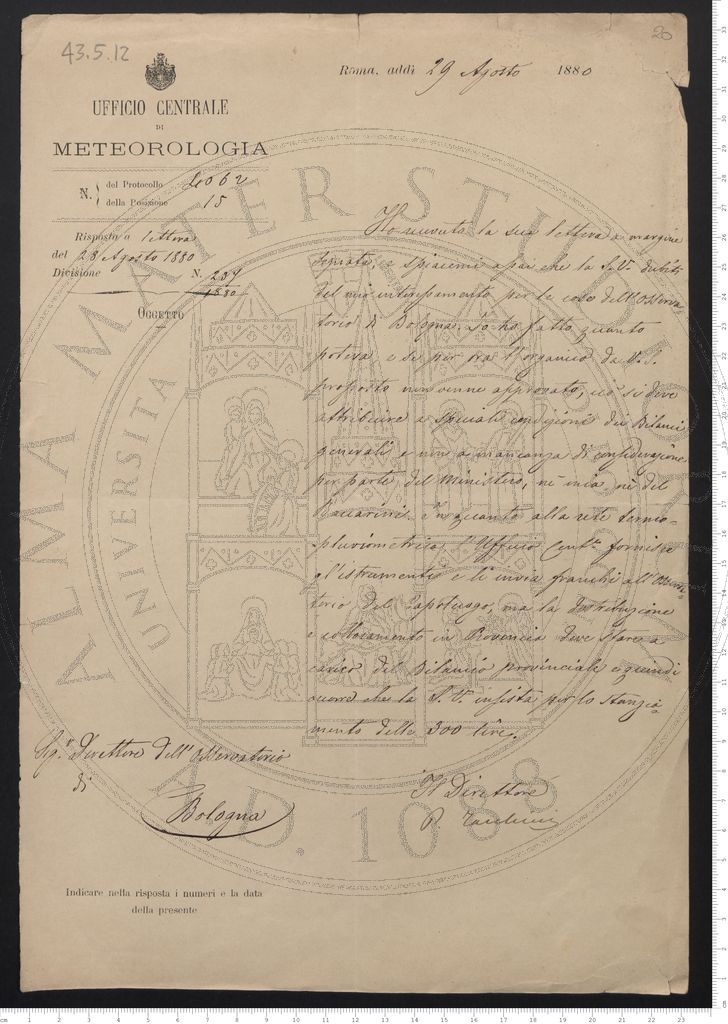 43.5.12
20
Roma, addì 29 Agosto 1880
UFFICIO CENTRALE
DI
METEOROLOGIA
N. del Protocollo 4062
della Posizione 15
Risposta a lettera
del 28 Agosto 1880
Divisione N. 209
1880
OGGETTO
Ho ricevuto la sua lettera a margine
e spiacemi assai che la S.V. dubiti
del mio interessamento per le cose dell'Osserva
torio di Bologna. Io ho fatto quanto
poteva e se per ora l'organico da V.S.
proposto non venne approvato, ciò si deve
attribuire a speciali condizioni dei Bilanci
generali, e non a mancanza di considerazione
per parte del Ministero, nè mia, nè del
Baccarini. In quanto alla rete termo-
pluviometrica l'Ufficio Cent.le fornisce
gl'istrumenti e li invia franchi all'Osserva-
torio del Capoluogo, ma la distribuzione
e collocamento in Provincia deve stare a
carico del Bilancio provinciale e quindi
occorre che la S.V. insista per lo stanzia-
mento delle 300 lire.
Sig.r Direttore dell'Osservatorio
di
Bologna
Il Direttore
P. Tacchini
Indicare nella risposta i numeri e la data
della presente
ALMA MATER STUDIORUM
UNIVERSITA
A.D. 1088
cm 1 2 3 4 5 6 7 8 9 10 11 12 13 14 15 16 17 18 19 20 21 22 23